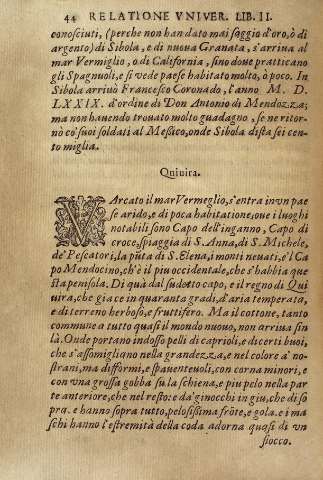 44 RELATIONE VNIVER. LIB. II.
conosciuti, (perche non han dato mai saggio d'oro, ò di
argento) di Sibola, e di nuoua Granata, s'arriua al
mar Vermiglio, o di California, sino doue pratticano
gli Spagnuoli, e si vede paese habitato molto, ò poco. In
Sibola arriuò Francesco Coronado, l'anno M. D.
LXXIX. d'ordine di Don Antonio di Mendozza;
ma non hauendo trouato molto guadagno, se ne ritor
nò co' suoi soldati al Messico, onde Sibola dista sei cen
to miglia.
Quiuira.
VArcato il mar Vermeglio, s'entra in vn pae
se arido, e di poca habitatione, oue i luoghi
notabili sono Capo dell'inganno, Capo di
croce, spiaggia di S. Anna, di S. Michele,
de' Pescatori, la pūta di S. Elena, i monti neuati, e'l Ca
po Mendocino, ch'è il piu occidentale, che s'habbia que
sta penisola. Di quà dal sudetto capo, e il regno di Qui
uira, che giace in quaranta gradi, d'aria temperata,
e di terreno herboso, e fruttifero. Ma il cottone, tanto
commune a tutto quasi il mondo nuouo, non arriua sin
là. Onde portano indosso pelli di caprioli, e di certi buoi,
che s'assomigliano nella grandezza, e nel colore a' no
strani, ma difformi, e spauenteuoli, con corna minori, e
con vna grossa gobba sù la schiena, e piu pelo nella par
te anteriore, che nel resto: e da ginocchi in giu, che di so
pra. e hanno sopra tutto, pelosissima frōte, e gola. e i ma
schi hanno l'estremità della coda adorna quasi di vn
fiocco.